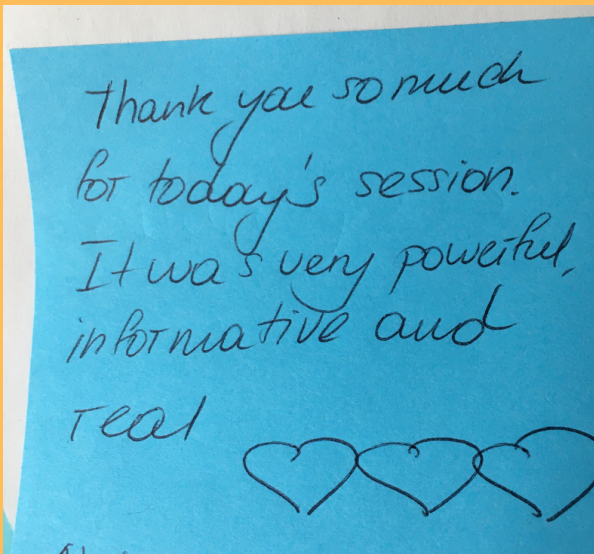 Thank you so much
for today's session.
It was very powerful,
informative and
real